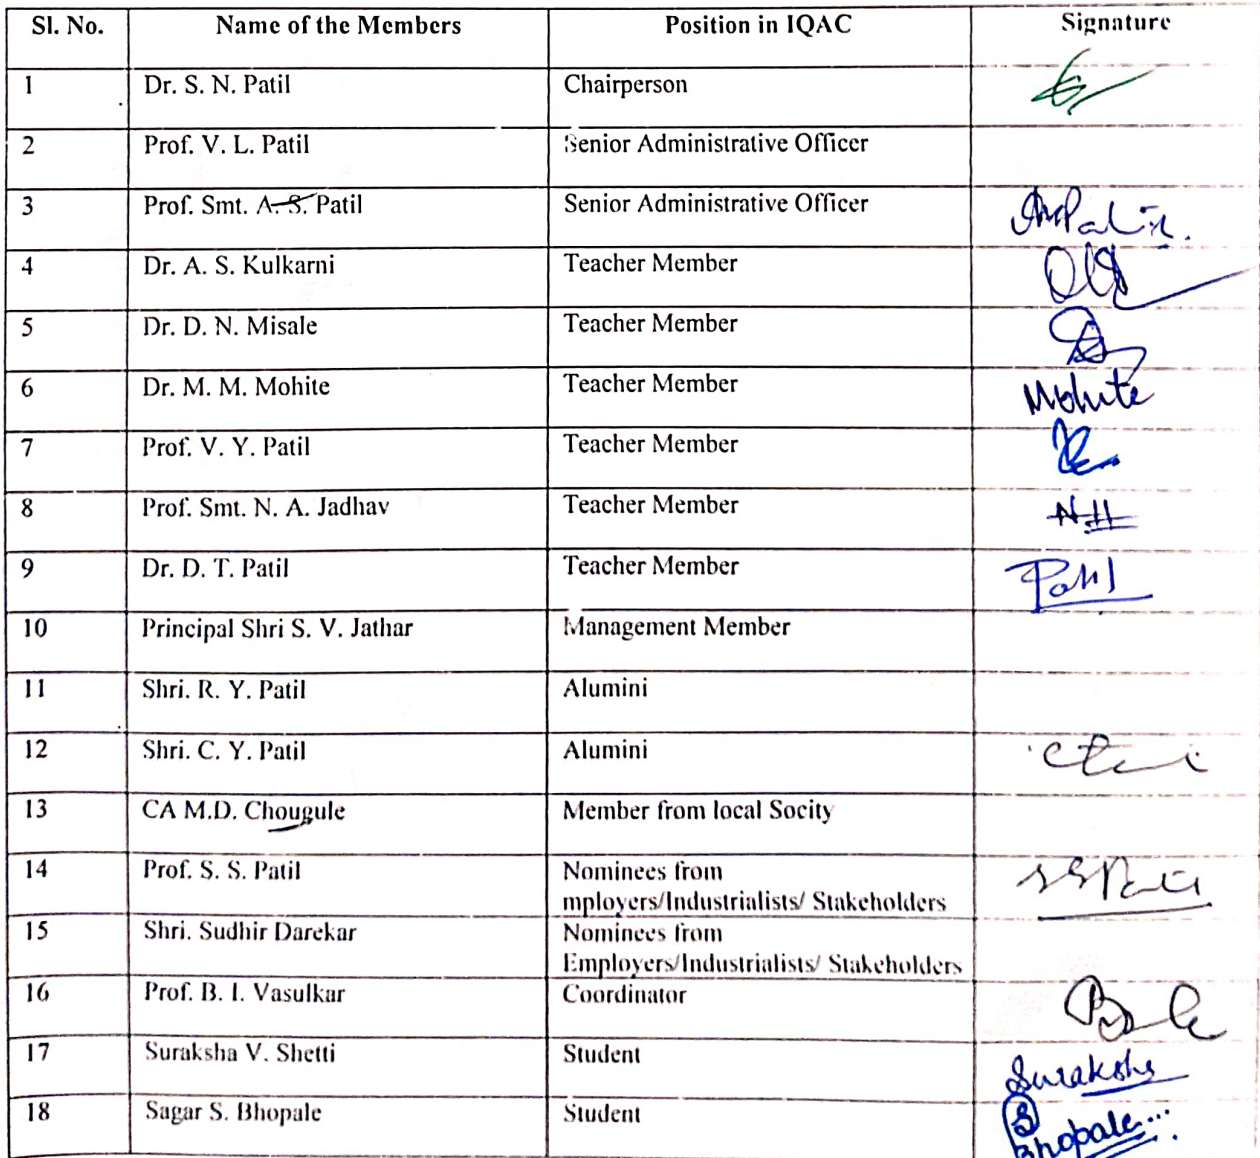 Sl. No. Name of the Members Position in IQAC Signature
1 Dr. S. N. Patil Chairperson
2 Prof. V. L. Patil Senior Administrative Officer
3 Prof. Smt. A. S. Patil Senior Administrative Officer
4 Dr. A. S. Kulkarni Teacher Member
5 Dr. D. N. Misale Teacher Member
6 Dr. M. M. Mohite Teacher Member Mohite
7 Prof. V. Y. Patil Teacher Member
8 Prof. Smt. N. A. Jadhav Teacher Member
9 Dr. D. T. Patil Teacher Member Patil
10 Principal Shri S. V. Jathar Management Member
11 Shri. R. Y. Patil Alumini
12 Shri. C. Y. Patil Alumini
13 CA M.D. Chougule Member from local Socity
14 Prof. S. S. Patil Nominees from
mployers/Industrialists/ Stakeholders
15 Shri. Sudhir Darekar Nominees from
Employers/Industrialists/ Stakeholders
16 Prof. B. I. Vasulkar Coordinator
17 Suraksha V. Shetti Student Suraksha
18 Sagar S. Bhopale Student S
Bhopale...